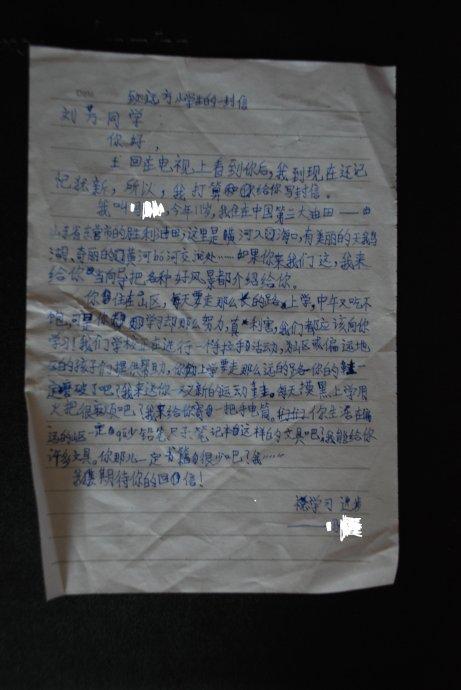 致远方小学生的一封信
刘芳同学
你好，
上回在电视上看到你后，我到现在还记
忆犹新，所以，我打算给你写封信。
我叫，今年11岁，我住在中国第二大油田——
山东省东营市的胜利油田；这里是黄河入海口，有美丽的天鹅
湖、奇丽的黄河的河交汇处……如果你来我们这，我来
给你当向导把各种好风景都介绍给你。
你住在山区，每天要走那么长的路上学，中午又吃不
饱，可是你学习却那么努力，真利害，我们都应该向你
学习！我们学校正在进行一帮拉手活动，为山区或偏远地
方的孩子们提供帮助，你上学要走那么远的路你的鞋一
定磨破了吧？我来送你一双新的运动鞋。每天摸黑上学用
火把很麻烦吧？我来给你寄一把手电筒。你生活在偏
远的山区一定缺少铅笔尺子、笔记本这样的文具吧？我能给你
许多文具。你那儿一定书籍很少吧？我……
我期待你的回信！
祝学习进步
——